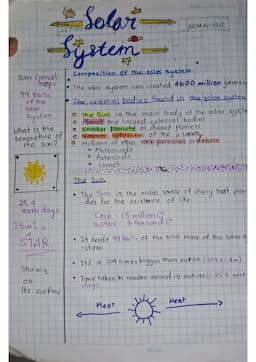 Solar
System
Composition of the solar system
The solar system was created 4600 million years
The celestial bodies found in the solar system
The Sun is the main body of the solar system
Planets the largest celestial bodies
Smaller planets or dwarf planets
Natural satellites of the planets
Millions of other rock particles or debris
Meteoroids
Asteroids
Comet
The Sun
The Sun is the main source of energy that provi
des for the existence of life.
Core : 15 million C°
Surface : 6 thousand C°
It holds 99.86% of the total mass of the solar s
ystem
It's 109 times bigger than earth
Time taken to rotate around its own axis 25.4 earth
days
Heat
Heat
Sun's
loops
99.86%
of the
solar
system
What is the
temperature of
the sun?
25.4
earth days
Sun is
a
STAR
Storms
on
its surface